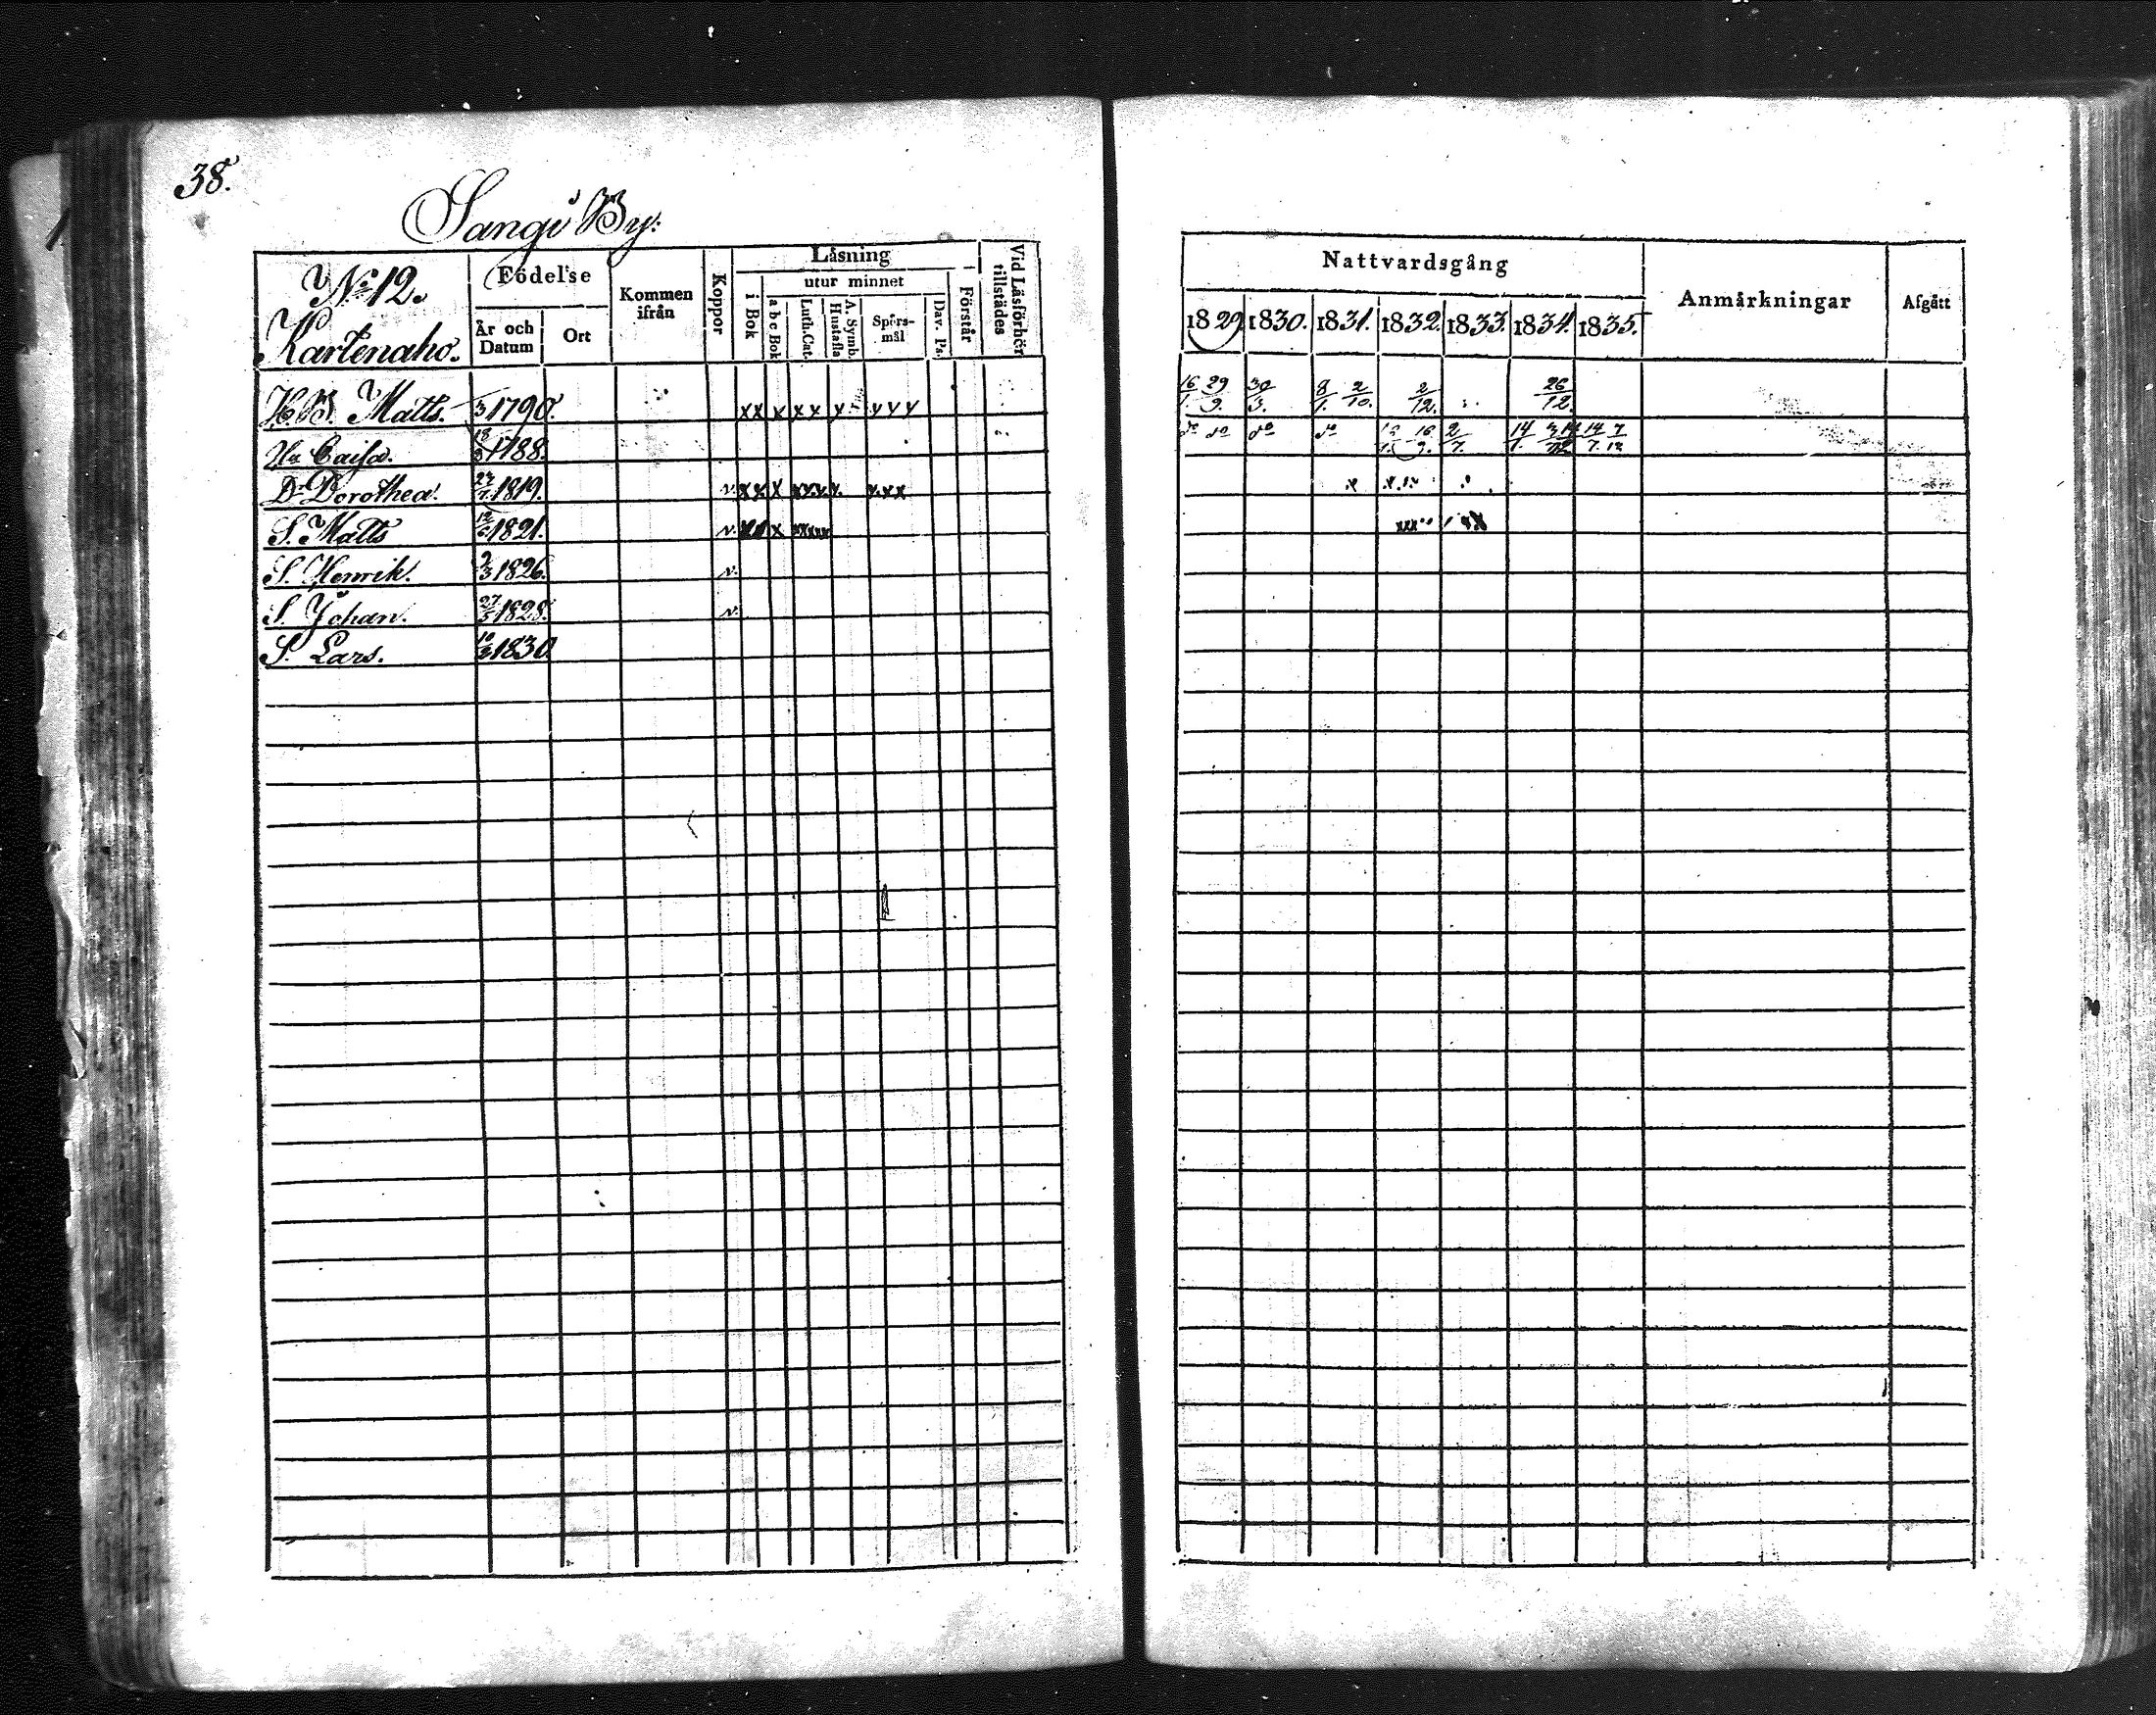 38.
Sangi By:
No 12.
Kartenaho.
Födelse
År och Datum
Ort
Kommen ifrån
Koppor
Läsning
i Bok
utur minnet
a b c Bok
Luth. Cat.
A. Symb. Hustafla
Spörs-mål
Dav. Ps.
Förstår
Vid Läsförhör tillstädes
Nattvardsgång
1829 1830. 1831. 1832. 1833. 1834. 1835.
Anmärkningar
Afgått
H. B. Matts. 1790. xx x xx x xxx 16/1 29/9. 30/3. 8/1. 2/10. 2/12. 26/12.
Hu Caisa. 1788. do do do do 2/7. 14/1. 14/7. 7/12
Dr Dorothea. 1819. v. xx x x.xx x x
S. Matts 12/6 1821. v. x
S. Henrik. 2/3 1826. v.
S. Johan. 27/5 1828. v.
S. Lars. 1830